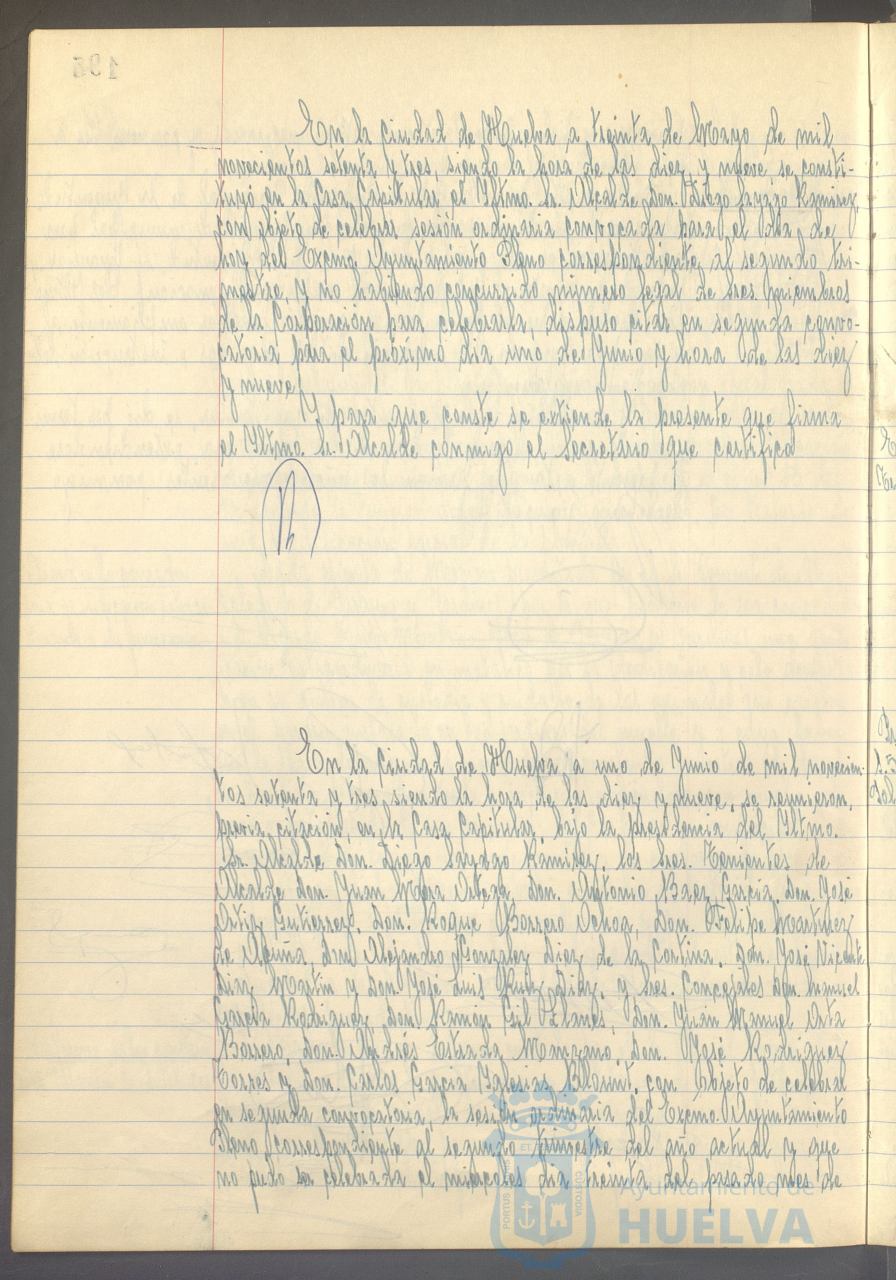 En la ciudad de Huelva a treinta de Mayo de mil
novecientos setenta y tres, siendo la hora de las diez y nueve se consti-
tuyó en la Casa Capitular el Yltmo. Sr. Alcalde Don. Diego Sayago Ramírez,
con objeto de celebrar sesión ordinaria convocada para el día de
hoy del Excmo. Ayuntamiento Pleno correspondiente al segundo tri-
mestre, y no habiendo concurrido número legal de Sres. miembros
de la Corporación para celebrarla, dispuso citar en segunda convo-
catoria para el próximo día uno de Junio y hora de las diez
y nueve.
Y para que conste se extiende la presente que firma
el Yltmo. Sr. Alcalde conmigo el Secretario que certifico
En la ciudad de Huelva a uno de Junio de mil novecien-
tos setenta y tres, siendo la hora de las diez y nueve, se reunieron,
previa citación, en la Casa Capitular, bajo la presidencia del Yltmo.
Sr. Alcalde Don. Diego Sayago Ramírez, los Sres. Tenientes de
Alcalde Don. Juan Mora Ortega, Don. Antonio Baez García, Don. José
Ortiz Gutierrez, Don. Roque Borrero Ochoa, Don. Felipe Martínez
de Acuña, Don Alejandro González Diez de la Cortina, Don. José Vicente
Díaz Martín y Don. José Luis Ruiz Díaz, y Sres. Concejales Don. Manuel
García Rodríguez, Don Ramón Gil Llanes, Don. Juan Manuel Orta
Borrero, Don. Andrés Estrada Manzano, Don. José Rodríguez
Torres y Don. Carlos García Yglesias Blloumt, con objeto de celebrar
en segunda convocatoria, la sesión ordinaria del Excmo. Ayuntamiento
Pleno correspondiente al segundo trimestre del año actual y que
no pudo ser celebrada el miércoles día treinta del pasado mes de
PORTUS ET CUSTODIA
Ayuntamiento de
HUELVA